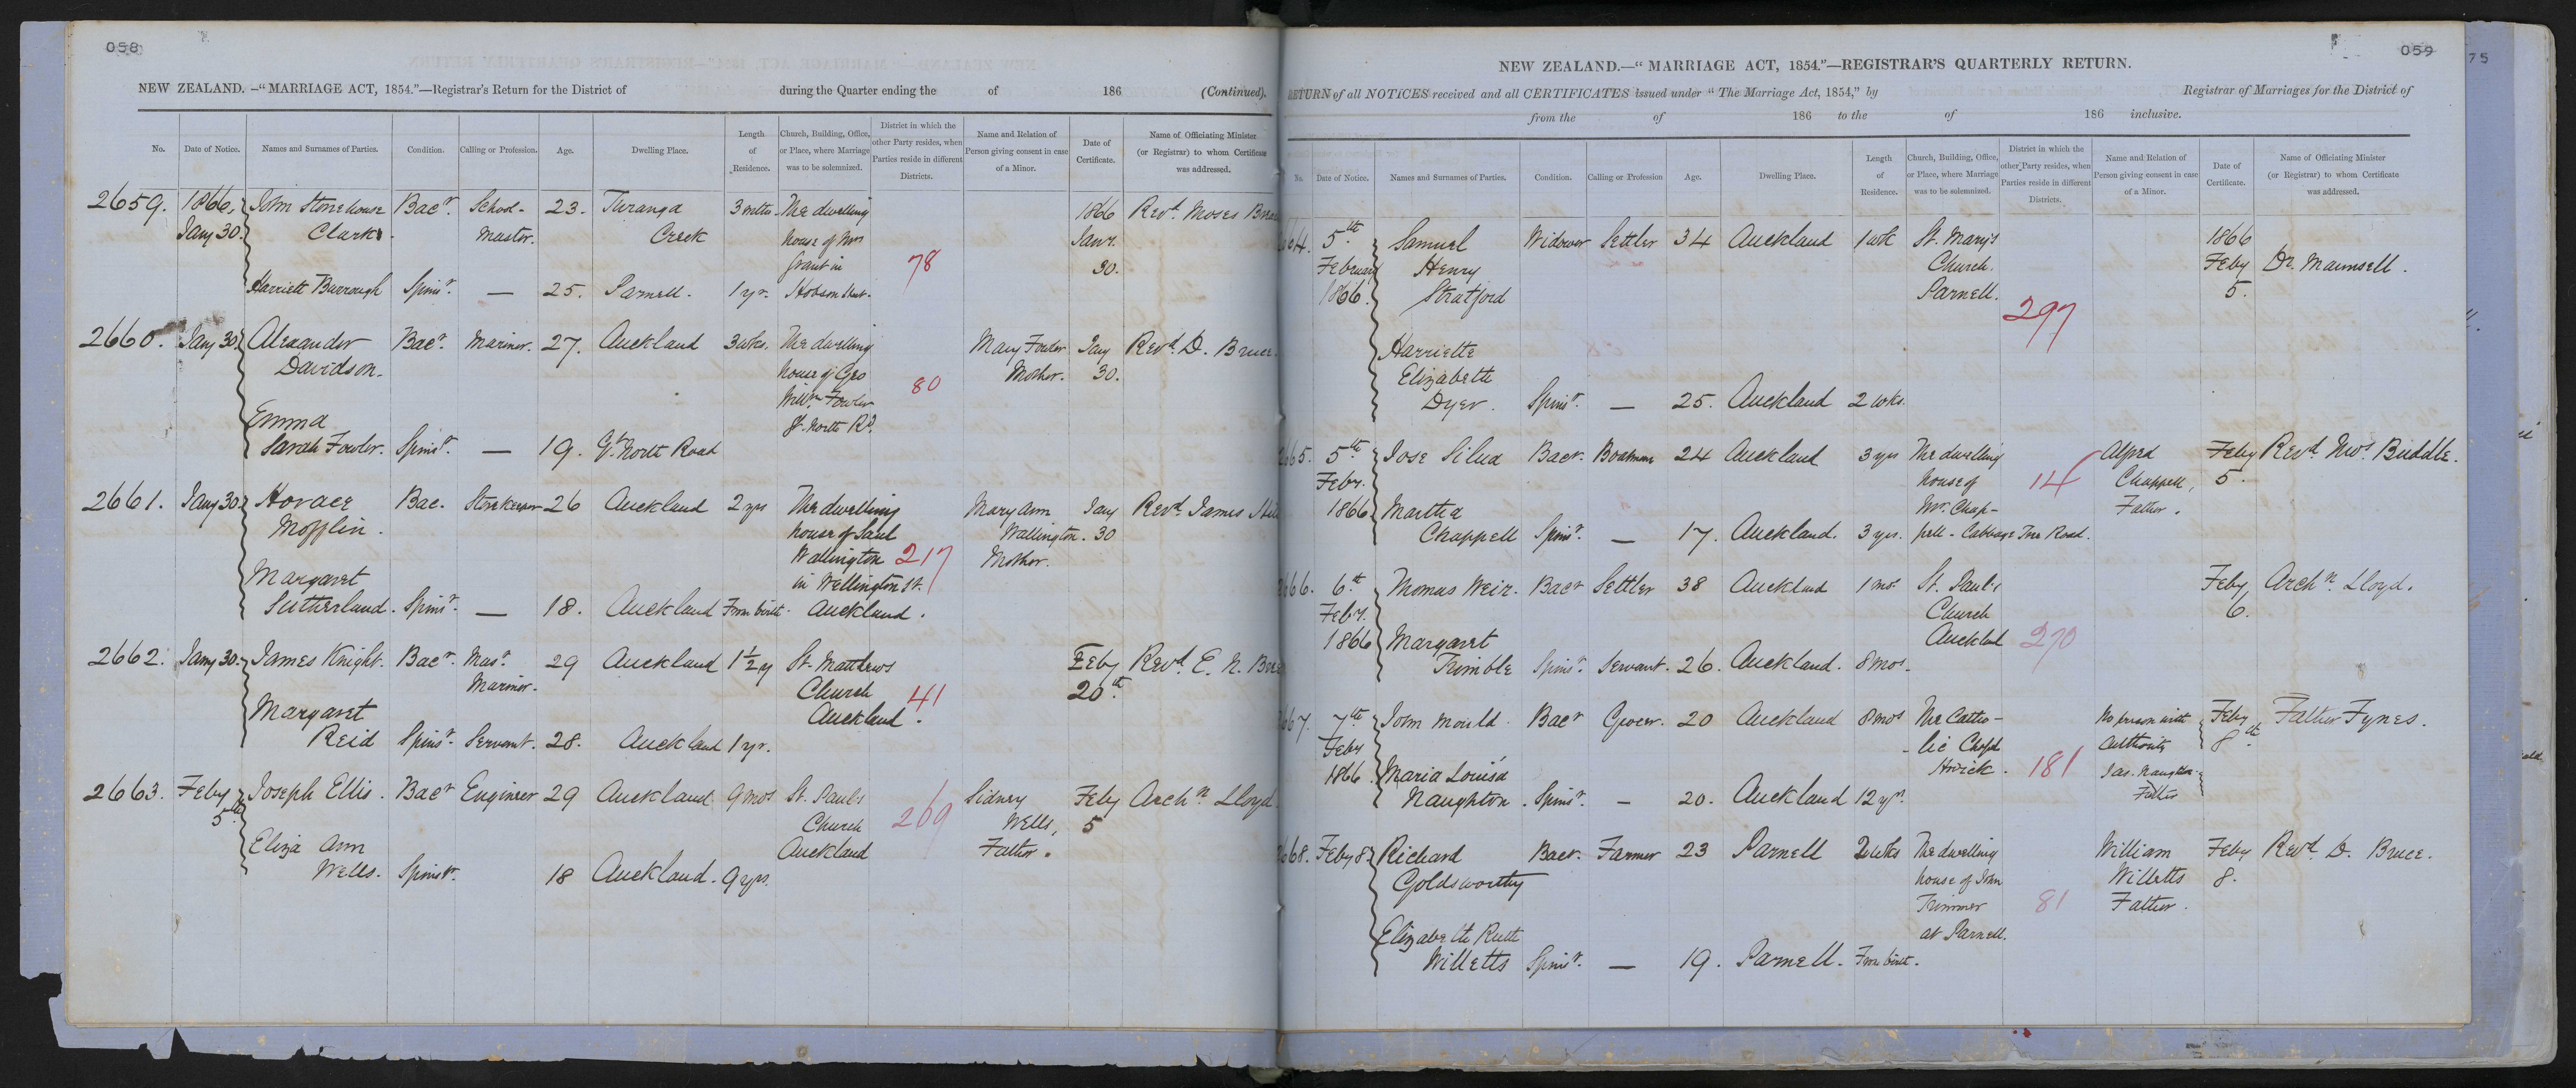 058
NEW ZEALAND.—"MARRIAGE ACT, 1854."—Registrar's Return for the District of during the Quarter ending the of 186 (Continued).
No. Date of Notice. Names and Surnames of Parties. Condition. Calling or Profession. Age. Dwelling Place. Length of Residence. Church, Building, Office, or Place, where Marriage was to be solemnized. District in which the other Party resides, when Parties reside in different Districts. Name and Relation of Person giving consent in case of a Minor. Date of Certificate. Name of Officiating Minister (or Registrar) to whom Certificate was addressed.
2659. 1866, John Stonehouse Bacr. School- 23. Turanga 3 mths. The dwelling 1866 Revd. Moses
Jany 30. Clark. master. Creek house of Mrs Janr.
Grant in 78 30.
Harriett Burrough Spinsr. — 25. Parnell. 1 yr. Hobson Street.
2660. Jany 30. Alexander Bacr. Mariner. 27. Auckland 3 wks. The dwelling Mary Fowler Jany Revd. D. Bruce.
Davidson. house of Geo Mother. 30.
Willm. Fowler 80
Emma Gt. North Rd.
Sarah Fowler. Spinsr. — 19. Gt. North Road
2661. Jany 30. Horace Bac. Storekeeper 26 Auckland 2 yrs The dwelling Mary Ann Jany Revd. James
Mofflin. house of Saul Wallington. 30
Wallington 217 Mother.
Margaret in Wellington St.
Sutherland. Spinsr. — 18. Auckland From birth. Auckland.
2662. Jany 30. James Knight. Bacr. Masr. 29 Auckland 1 1/2 y St. Matthews Feby Revd. E. N.
Mariner. Church 41 20th.
Margaret Auckland.
Reid Spinsr. Servant. 28. Auckland 1 yr.
2663. Feby Joseph Ellis. Bacr Engineer 29 Auckland 9 mos St. Pauls Sidney Feby Archn. Lloyd
5th Church 269 Wells, 5
Eliza Ann Auckland Father.
Wells. Spinsr. 18 Auckland. 9 yrs.
059
NEW ZEALAND.—"MARRIAGE ACT, 1854."—REGISTRAR'S QUARTERLY RETURN.
RETURN of all NOTICES received and all CERTIFICATES issued under "The Marriage Act, 1854," by Registrar of Marriages for the District of
from the of 186 to the of 186 inclusive.
No. Date of Notice. Names and Surnames of Parties. Condition. Calling or Profession Age. Dwelling Place. Length of Residence. Church, Building, Office, or Place, where Marriage was to be solemnized. District in which the other Party resides, when Parties reside in different Districts. Name and Relation of Person giving consent in case of a Minor. Date of Certificate. Name of Officiating Minister (or Registrar) to whom Certificate was addressed.
664. 5th Samuel Widower Settler 34 Auckland 1 wk St. Mary's 1866
February Henry Church. Feby Dr. Maunsell.
1866. Stratford Parnell. 5.
297
Harriette
Elizabeth
Dyer. Spinsr. — 25. Auckland 2 wks.
665. 5th Jose Silva Bacr. Boatman 24 Auckland 3 yrs The dwelling Alfred Feby Revd. Buddle.
Feby. house of 14 Chappell, 5.
1866 Martha Mr. Chap- Father.
Chappell Spinsr. — 17. Auckland. 3 yrs. pell - Cabbage Tree Road.
666. 6th Thomas Weir. Bacr Settler 38 Auckland 1 mo. St. Paul's Feby Archn. Lloyd.
Feby. Church 6.
1866 Margaret Auckland 270
Trimble Spinsr. Servant. 26. Auckland. 8 mos.
667. 7th John Mould. Bacr Grocer. 20 Auckland 8 mos The Catho- No person with Feby Father Fynes.
Feby lic Chapel Authority 8th.
1866. Maria Louisa Howick. 181 Jas. Naughton
Naughton. Spinsr. — 20. Auckland 12 yrs. Father
668. Feby 8. Richard Bacr. Farmer 23 Parnell 2 wks The dwelling William Feby Revd. D. Bruce.
Goldsworthy house of John Willetts 8.
Trimmer 81 Father.
Elizabeth Ruth at Parnell.
Willetts Spinsr. — 19. Parnell. From birth.
75